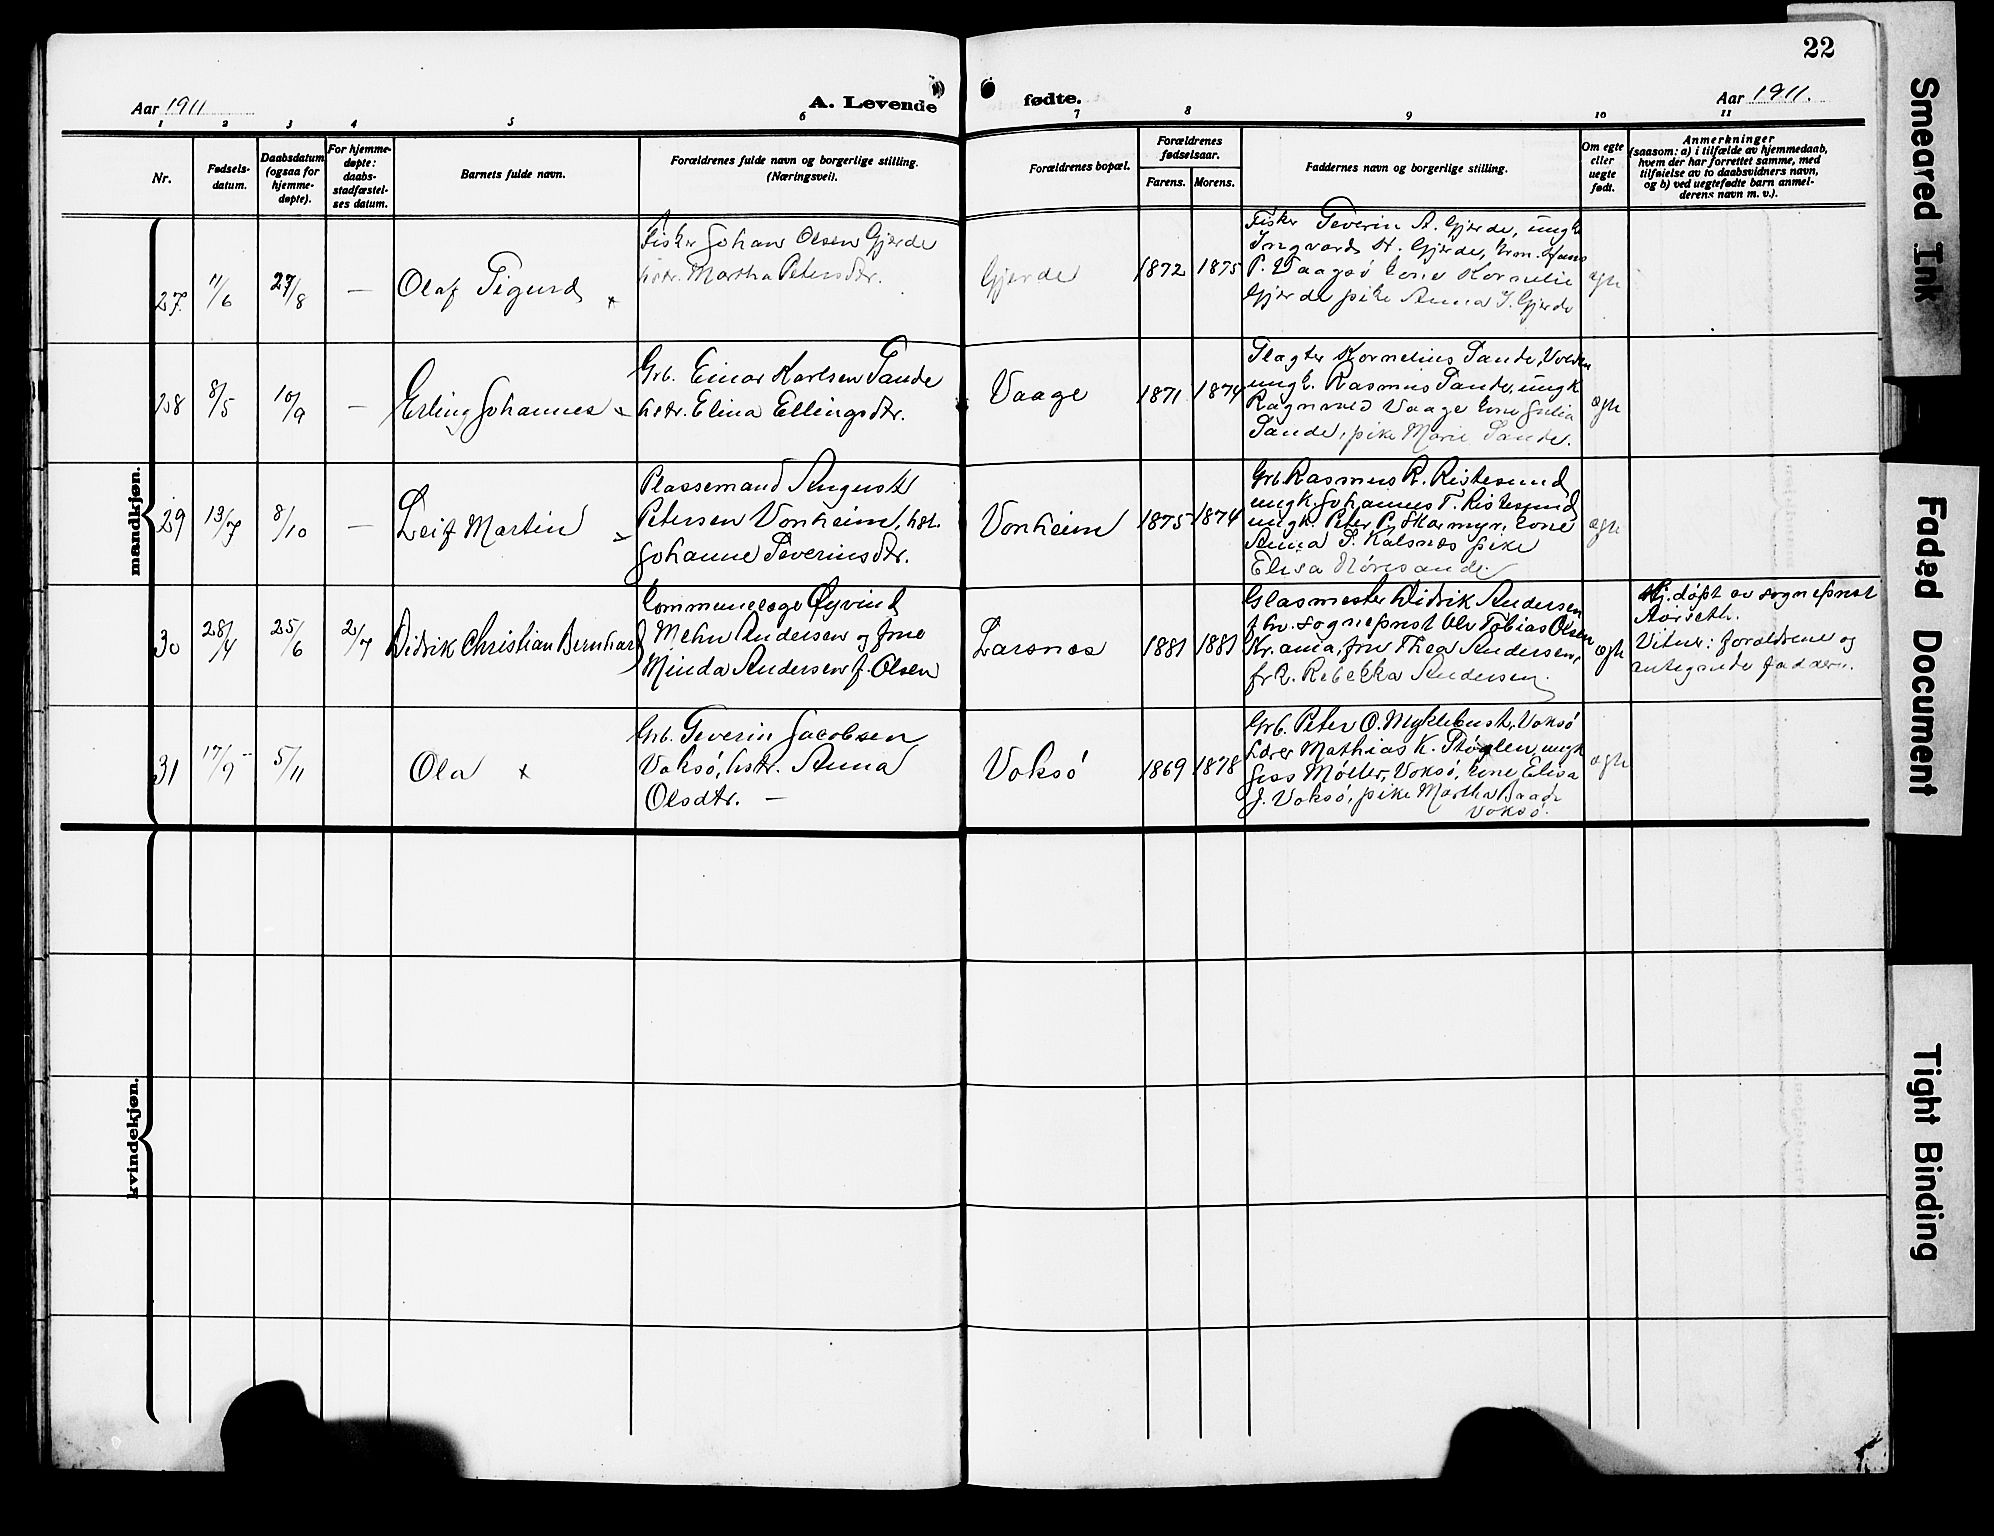 22
Aar 1911
A. Levende
fødte.
Aar 1911.
1 2 3 4 5 6 7 8 9 10 11
Nr.
Fødsels-
datum.
Daabsdatum
(ogsaa for
hjemme-
døpte).
For hjemme-
døpte:
daabs-
stadfæstel-
ses datum.
Barnets fulde navn.
Forældrenes fulde navn og borgerlige stilling.
(Næringsvei).
Forældrenes bopæl.
Forældrenes
fødselsaar.
Farens. Morens.
Faddernes navn og borgerlige stilling.
Om egte
eller
uegte
født.
Anmerkninger
(saasom: a) i tilfælde av hjemmedaab,
hvem der har forrettet samme, med
tilføielse av to daabsvidners navn,
og b) ved uegtefødte barn anmel-
derens navn m. v.).
mandkjøn.
27. 11/6 27/8 — Olaf Sigurd x
Fisker Johan Olsen Gjerde
hstr. Martha Petersdtr.
Gjerde 1872 1875
Fisker Severin A. Gjerde, ungk.
Ingvard H. Gjerde, Erm. Hans
P. Vaagsø kone Kornelie
Gjerde pike Anna J. Gjerde
egte
28 8/5 10/9 — Erling Johannes x
Grb. Einar Karlsen Sande
hstr. Elina Ellingsdtr.
Vaage 1871 1874
Slagter Kornelius Sande, Volden
ungk. Rasmus Sande, ungk
Ragnvald Vaage kone Julia
Sande, pike Marie Sande.
egte
29 13/7 8/10 — Leif Martin x
Plassemand August
Petersen Vonheim, hst.
Johanne Severinsdtr.
Vonheim 1875 1874
Grb. Rasmus R. Ristesund
ungk. Johannes T. Ristesund
ungk. Peter P. Skarmyr, kone
Anna P. Kalsnes pike
Elisa Nøresande.
egte
30 28/4 25/6 2/7 Didrik Christian Bernhard
Communelæge Øyvind
Mehn Andersen og frue
Minda Andersen f. Olsen
Larsnes 1881 1881
Glasmester Didrik Andersen
fhv. sogneprest Ole Tobias Olsen
Kr.ania, fru Thea Andersen,
frk. Rebekka Andersen
egte
Hj. døpt av sogneprest
Aarseth.
Vitner: forældrene og
antegnede faddere.
31 17/9 5/11 Ola x
Grb. Severin Jacobsen
Voksø, hstr. Anna
Olsdtr. —
Voksø 1869 1878
Grb. Peter O. Myklebust, Voksø
Lærer Mathias K. Støylen, ungk
Jess Møller, Voksø, kone Elisa
J. Voksø, pike Martha Baade
Voksø.
egte
kvindekjøn.
Smeared Ink
Faded Document
Tight Binding